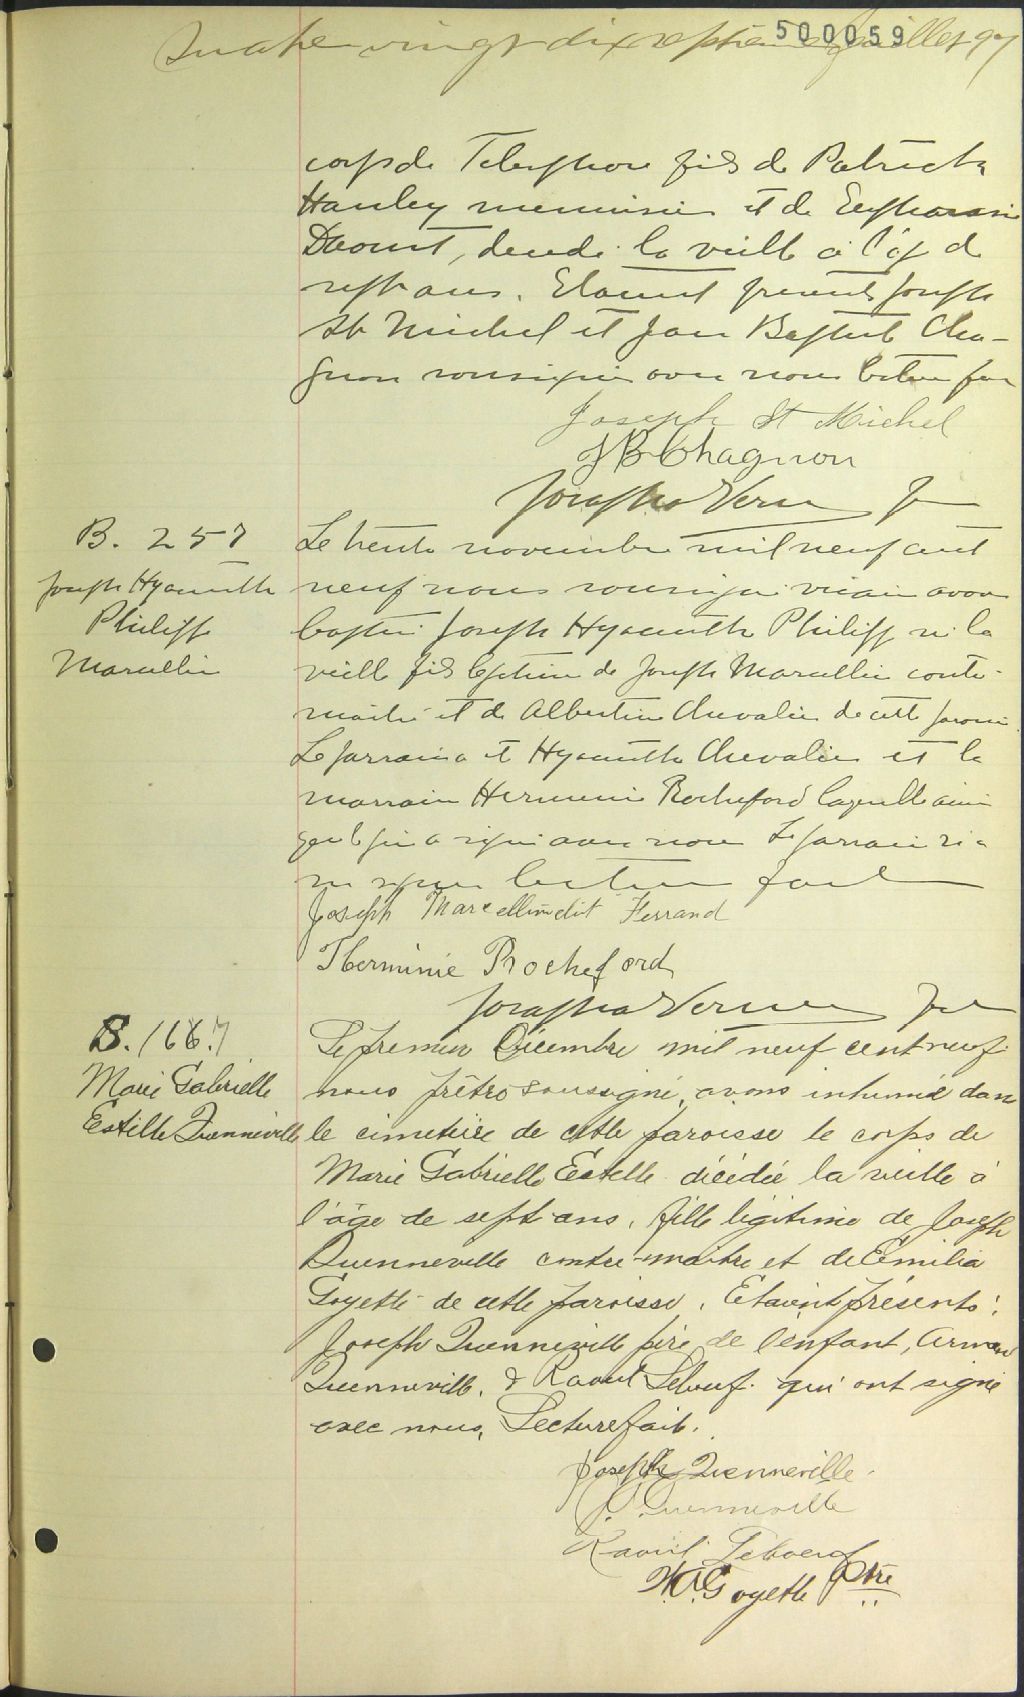 Quatre vingt dix septième feuillet 97
500059
corps de Telesphore fils de Patrick
Hanley menuisier et de Euphrasie
Daoust, decede la veille a l'age de
sept ans. Etaient presents Joseph
St Michel et Jean Baptiste Cha-
gnon soussignes avec nous lecture fai
Joseph St Michel
J B Chagnon
Josaphat Ptr
B. 257
Joseph Hyacinthe
Philippe
Marcellin
Le trente novembre mil neuf cent
neuf nous soussigne vicaire avons
baptise Joseph Hyacinthe Philippe ne la
veille fils legitime de Joseph Marcellin contre-
maitre et de Albertine Chevalier de cette paroisse
Le parrain a ete Hyacinthe Chevalier et la
marraine Herminie Rocheford laquelle ainsi
que le pere a signe avec nous Le parrain n'a
su signer lecture faite
Joseph Marcellin dit Ferrand
Herminie Rocheford
Josaphat Ptr
S. 166.7
Marie Gabrielle
Estelle Quenneville
Le premier Décembre mil neuf cent neuf
nous prêtre soussigné, avons inhumé dans
le cimetière de cette paroisse le corps de
Marie Gabrielle Estelle décédée la veille à
l'âge de sept ans, fille légitime de Joseph
Quenneville contre-maitre et de Emilia
Goyette de cette paroisse. Etaient présents:
Joseph Quenneville père de l'enfant, Arman
Quenneville, & Raoul Leboeuf qui ont signé
avec nous, Lecture faite.
Joseph Quenneville
Quenneville
Raoul Leboeuf
Goyette Ptre